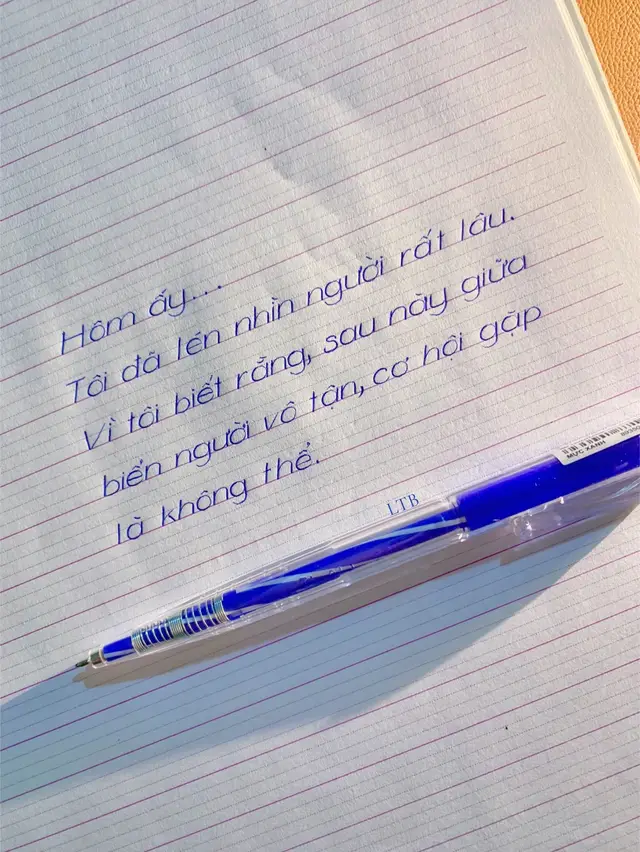 Hôm ấy...
Tôi đã lén nhìn người rất lâu.
Vì tôi biết rằng, sau này giữa
biển người vô tận, cơ hội gặp
là không thể.
LTB
MỰC XANH